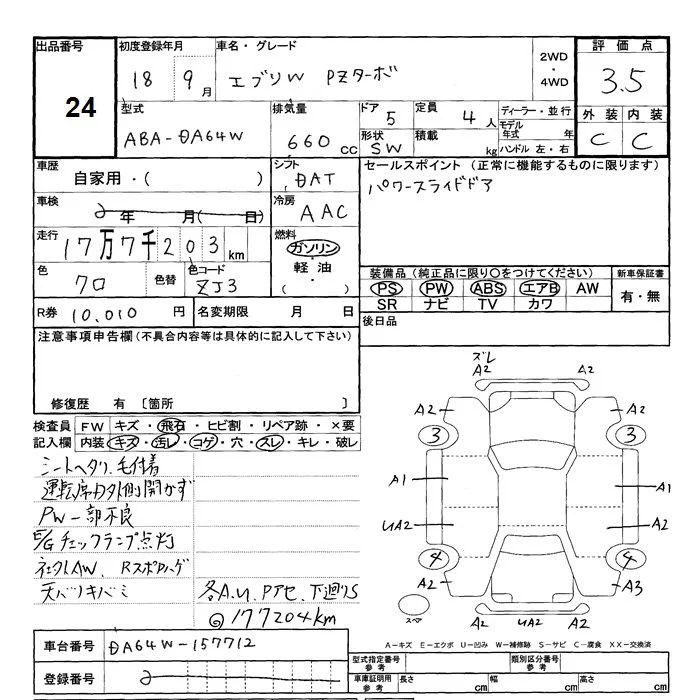 出品番号
24
初度登録年月
18 9 月
車名・グレード
エブリW PZターボ
2WD
・
4WD
評価点
3.5
外装 内装
C C
型式
ABA-DA64W
排気量
660 cc
ドア
5
定員
4 人
形状
SW
積載
kg
ディーラー・並行
モデル年式 年
ハンドル 左・右
車歴
自家用・( )
シフト
DAT
車検
2 年 月( 日)
冷房
AAC
走行
17万7千203km
燃料
ガソリン
・
軽油
・
( )
色
クロ
色替
色コード
ZJ3
R券 10,010 円
名変期限 月 日
セールスポイント (正常に機能するものに限ります)
パワースライドドア
装備品 (純正品に限り○をつけてください)
PS PW ABS エアB AW
SR ナビ TV カワ
新車保証書
有・無
後日品
注意事項申告欄(不具合内容等は具体的に記入して下さい)
修復歴 有 〔箇所 〕
検査員記入欄
FW キズ・飛石・ヒビ割・リペア跡・×要
内装 キズ・汚レ・コゲ・穴・スレ・キレ・破レ
シートヘタリ、毛仕様
運転席外側開かず
PW一部不良
E/Gチェックランプ点灯
社外AW、RスポDハゲ
天バリキバミ
各A.U、Pアセ、下廻りS
◎177204km
ズレ
A2 A2
A2 A2
3 3
A1 A1
UA2 A2
4 4
A2 A3
A2 UA2 A2
スペア
A-キズ E-エクボ U-凹み W-補修跡 S-サビ C-腐食 XX-交換済
車台番号 DA64W-157712
登録番号 2
型式指定番号 参考
類別区分番号 参考
車庫証明用 参考
長さ cm
幅 cm
高さ cm